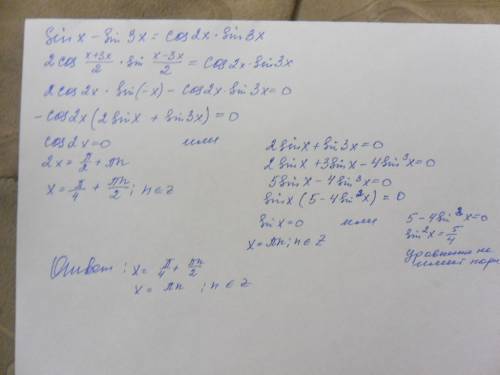 sin x - sin 3x = cos 2x · sin 3x
2 cos (x+3x)/2 · sin (x-3x)/2 = cos 2x · sin 3x
2 cos 2x · sin(-x) - cos 2x · sin 3x = 0
- cos 2x (2 sin x + sin 3x) = 0
cos 2x = 0 или 2 sin x + sin 3x = 0
2x = π/2 + πn 2 sin x + 3 sin x - 4 sin³x = 0
x = π/4 + πn/2 ; n ∈ Z 5 sin x - 4 sin³x = 0
sin x (5 - 4 sin²x) = 0
sin x = 0 или 5 - 4 sin²x = 0
x = πn ; n ∈ Z sin²x = 5/4
уравнение не
имеет корн
Ответ : x = π/4 + πn/2
x = πn ; n ∈ Z